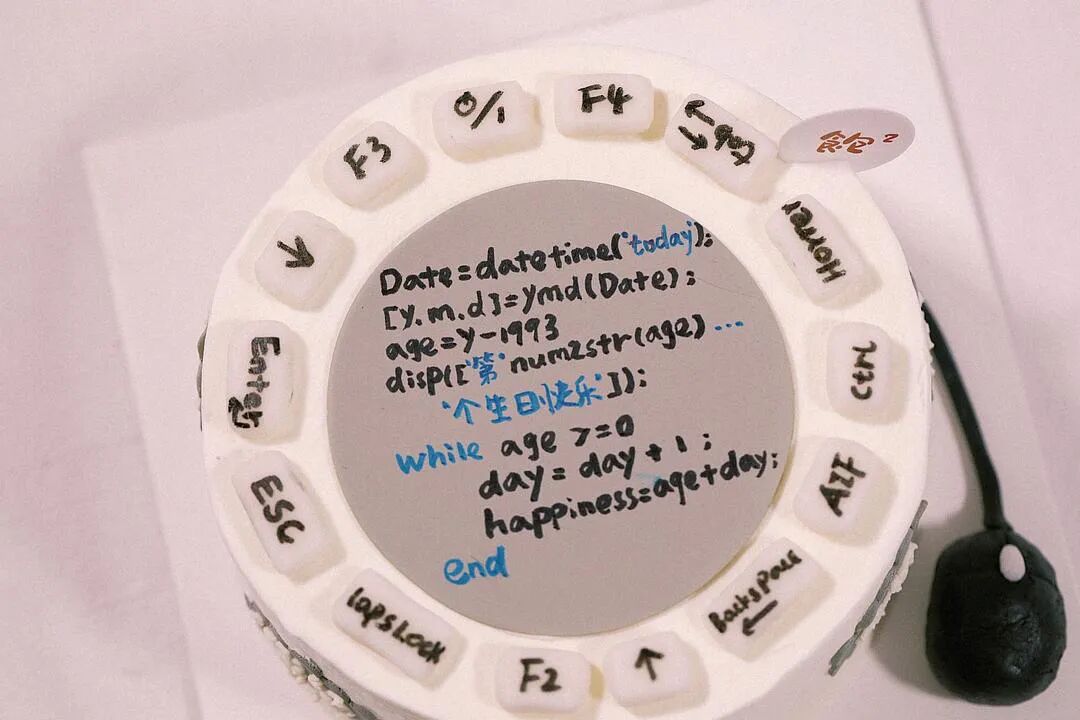 Date=datetime('today');
[y.m.d]=ymd(Date);
age=y-1993
disp(['第'num2str(age)...
'个生日快乐']);
while age >=0
day=day+1;
happiness=age+day;
end
F3
0/1
F4
Home
ctrl
Backspace
←
↑
F2
lapsLock
ESC
Enter
↓
飽²